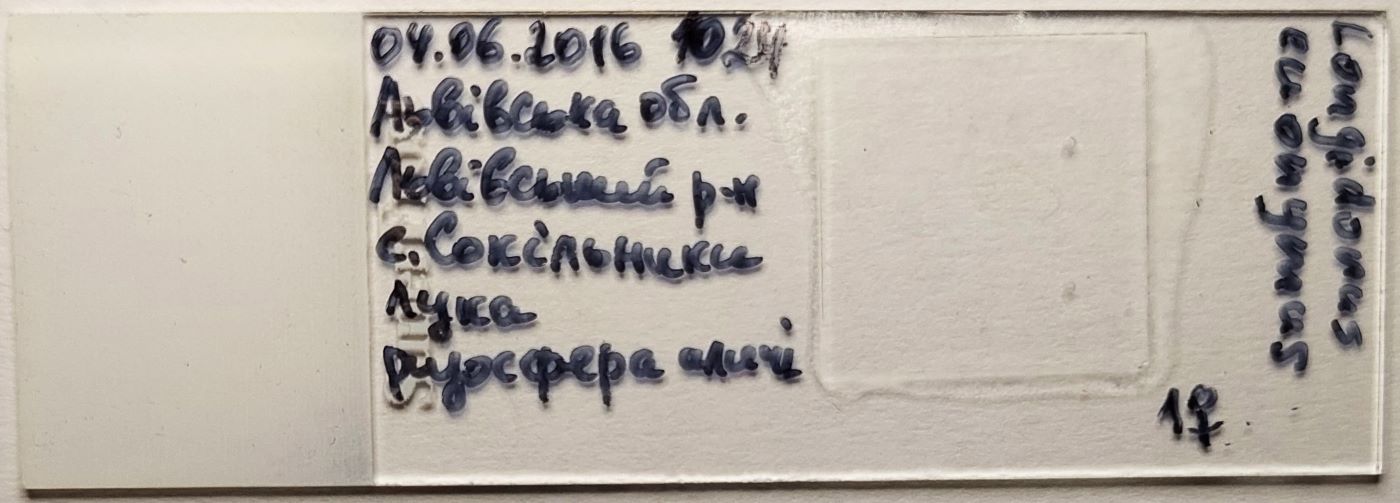 04.06.2016 1024
Львівська обл.
Львівський р-н
с. Сокільники
лука
ризосфера аличі
Longidorus
euonymus
1♀